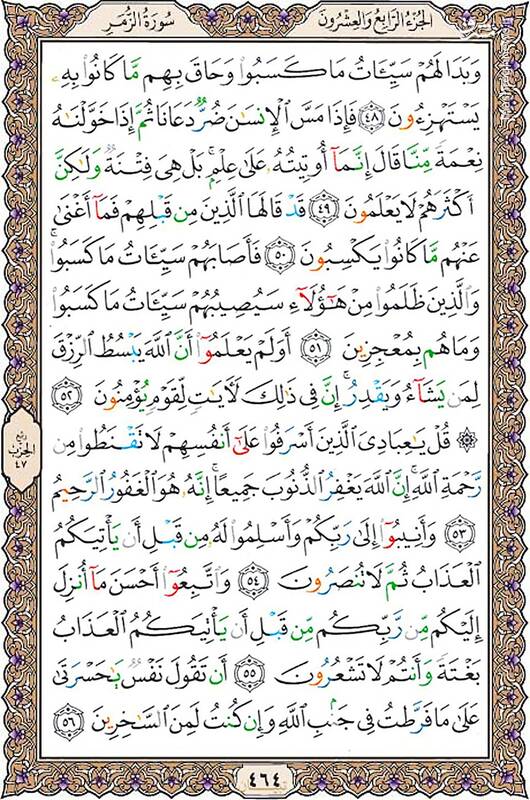 الجُزْءُ الرَّابِعُ وَالعِشْرُونَ
سُورَةُ الزُّمَرِ
وَبَدَا لَهُمْ سَيِّـَٔاتُ مَا كَسَبُوا۟ وَحَاقَ بِهِم مَّا كَانُوا۟ بِهِۦ
يَسْتَهْزِءُونَ ٤٨ فَإِذَا مَسَّ ٱلْإِنسَٰنَ ضُرٌّ دَعَانَا ثُمَّ إِذَا خَوَّلْنَٰهُ
نِعْمَةً مِّنَّا قَالَ إِنَّمَآ أُوتِيتُهُۥ عَلَىٰ عِلْمٍۭ ۚ بَلْ هِىَ فِتْنَةٌ وَلَٰكِنَّ
أَكْثَرَهُمْ لَا يَعْلَمُونَ ٤٩ قَدْ قَالَهَا ٱلَّذِينَ مِن قَبْلِهِمْ فَمَآ أَغْنَىٰ
عَنْهُم مَّا كَانُوا۟ يَكْسِبُونَ ٥٠ فَأَصَابَهُمْ سَيِّـَٔاتُ مَا كَسَبُوا۟ ۚ
وَٱلَّذِينَ ظَلَمُوا۟ مِنْ هَٰٓؤُلَآءِ سَيُصِيبُهُمْ سَيِّـَٔاتُ مَا كَسَبُوا۟
وَمَا هُم بِمُعْجِزِينَ ٥١ أَوَلَمْ يَعْلَمُوٓا۟ أَنَّ ٱللَّهَ يَبْسُطُ ٱلرِّزْقَ
لِمَن يَشَآءُ وَيَقْدِرُ ۚ إِنَّ فِى ذَٰلِكَ لَءَايَٰتٍ لِّقَوْمٍ يُؤْمِنُونَ ٥٢
۞ قُلْ يَٰعِبَادِىَ ٱلَّذِينَ أَسْرَفُوا۟ عَلَىٰٓ أَنفُسِهِمْ لَا تَقْنَطُوا۟ مِن
رَّحْمَةِ ٱللَّهِ ۚ إِنَّ ٱللَّهَ يَغْفِرُ ٱلذُّنُوبَ جَمِيعًا ۚ إِنَّهُۥ هُوَ ٱلْغَفُورُ ٱلرَّحِيمُ
٥٣ وَأَنِيبُوٓا۟ إِلَىٰ رَبِّكُمْ وَأَسْلِمُوا۟ لَهُۥ مِن قَبْلِ أَن يَأْتِيَكُمُ
ٱلْعَذَابُ ثُمَّ لَا تُنصَرُونَ ٥٤ وَٱتَّبِعُوٓا۟ أَحْسَنَ مَآ أُنزِلَ
إِلَيْكُم مِّن رَّبِّكُم مِّن قَبْلِ أَن يَأْتِيَكُمُ ٱلْعَذَابُ
بَغْتَةً وَأَنتُمْ لَا تَشْعُرُونَ ٥٥ أَن تَقُولَ نَفْسٌ يَٰحَسْرَتَىٰ
عَلَىٰ مَا فَرَّطتُ فِى جَنۢبِ ٱللَّهِ وَإِن كُنتُ لَمِنَ ٱلسَّٰخِرِينَ ٥٦
ربع
الحزب
٤٧
٤٦٤